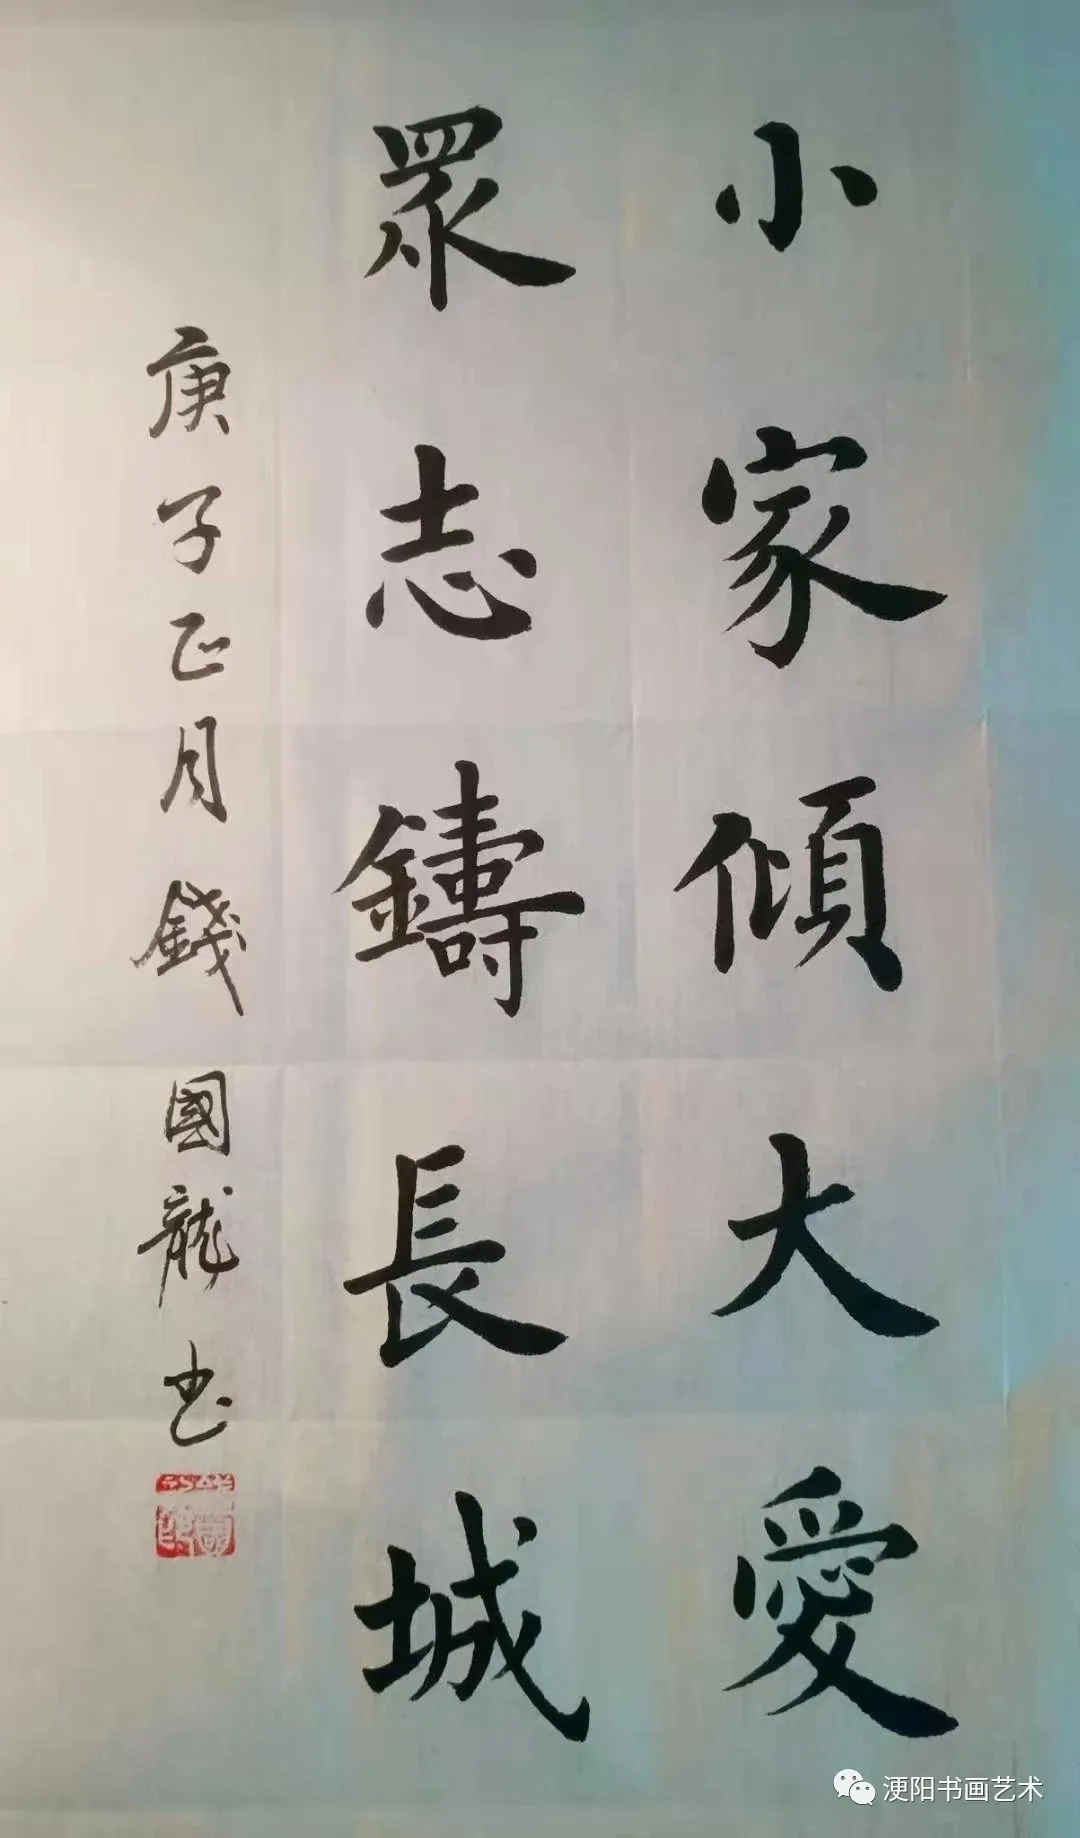 小家傾大愛
眾志鑄長城
庚子正月錢國龍书
梗阳书画艺术